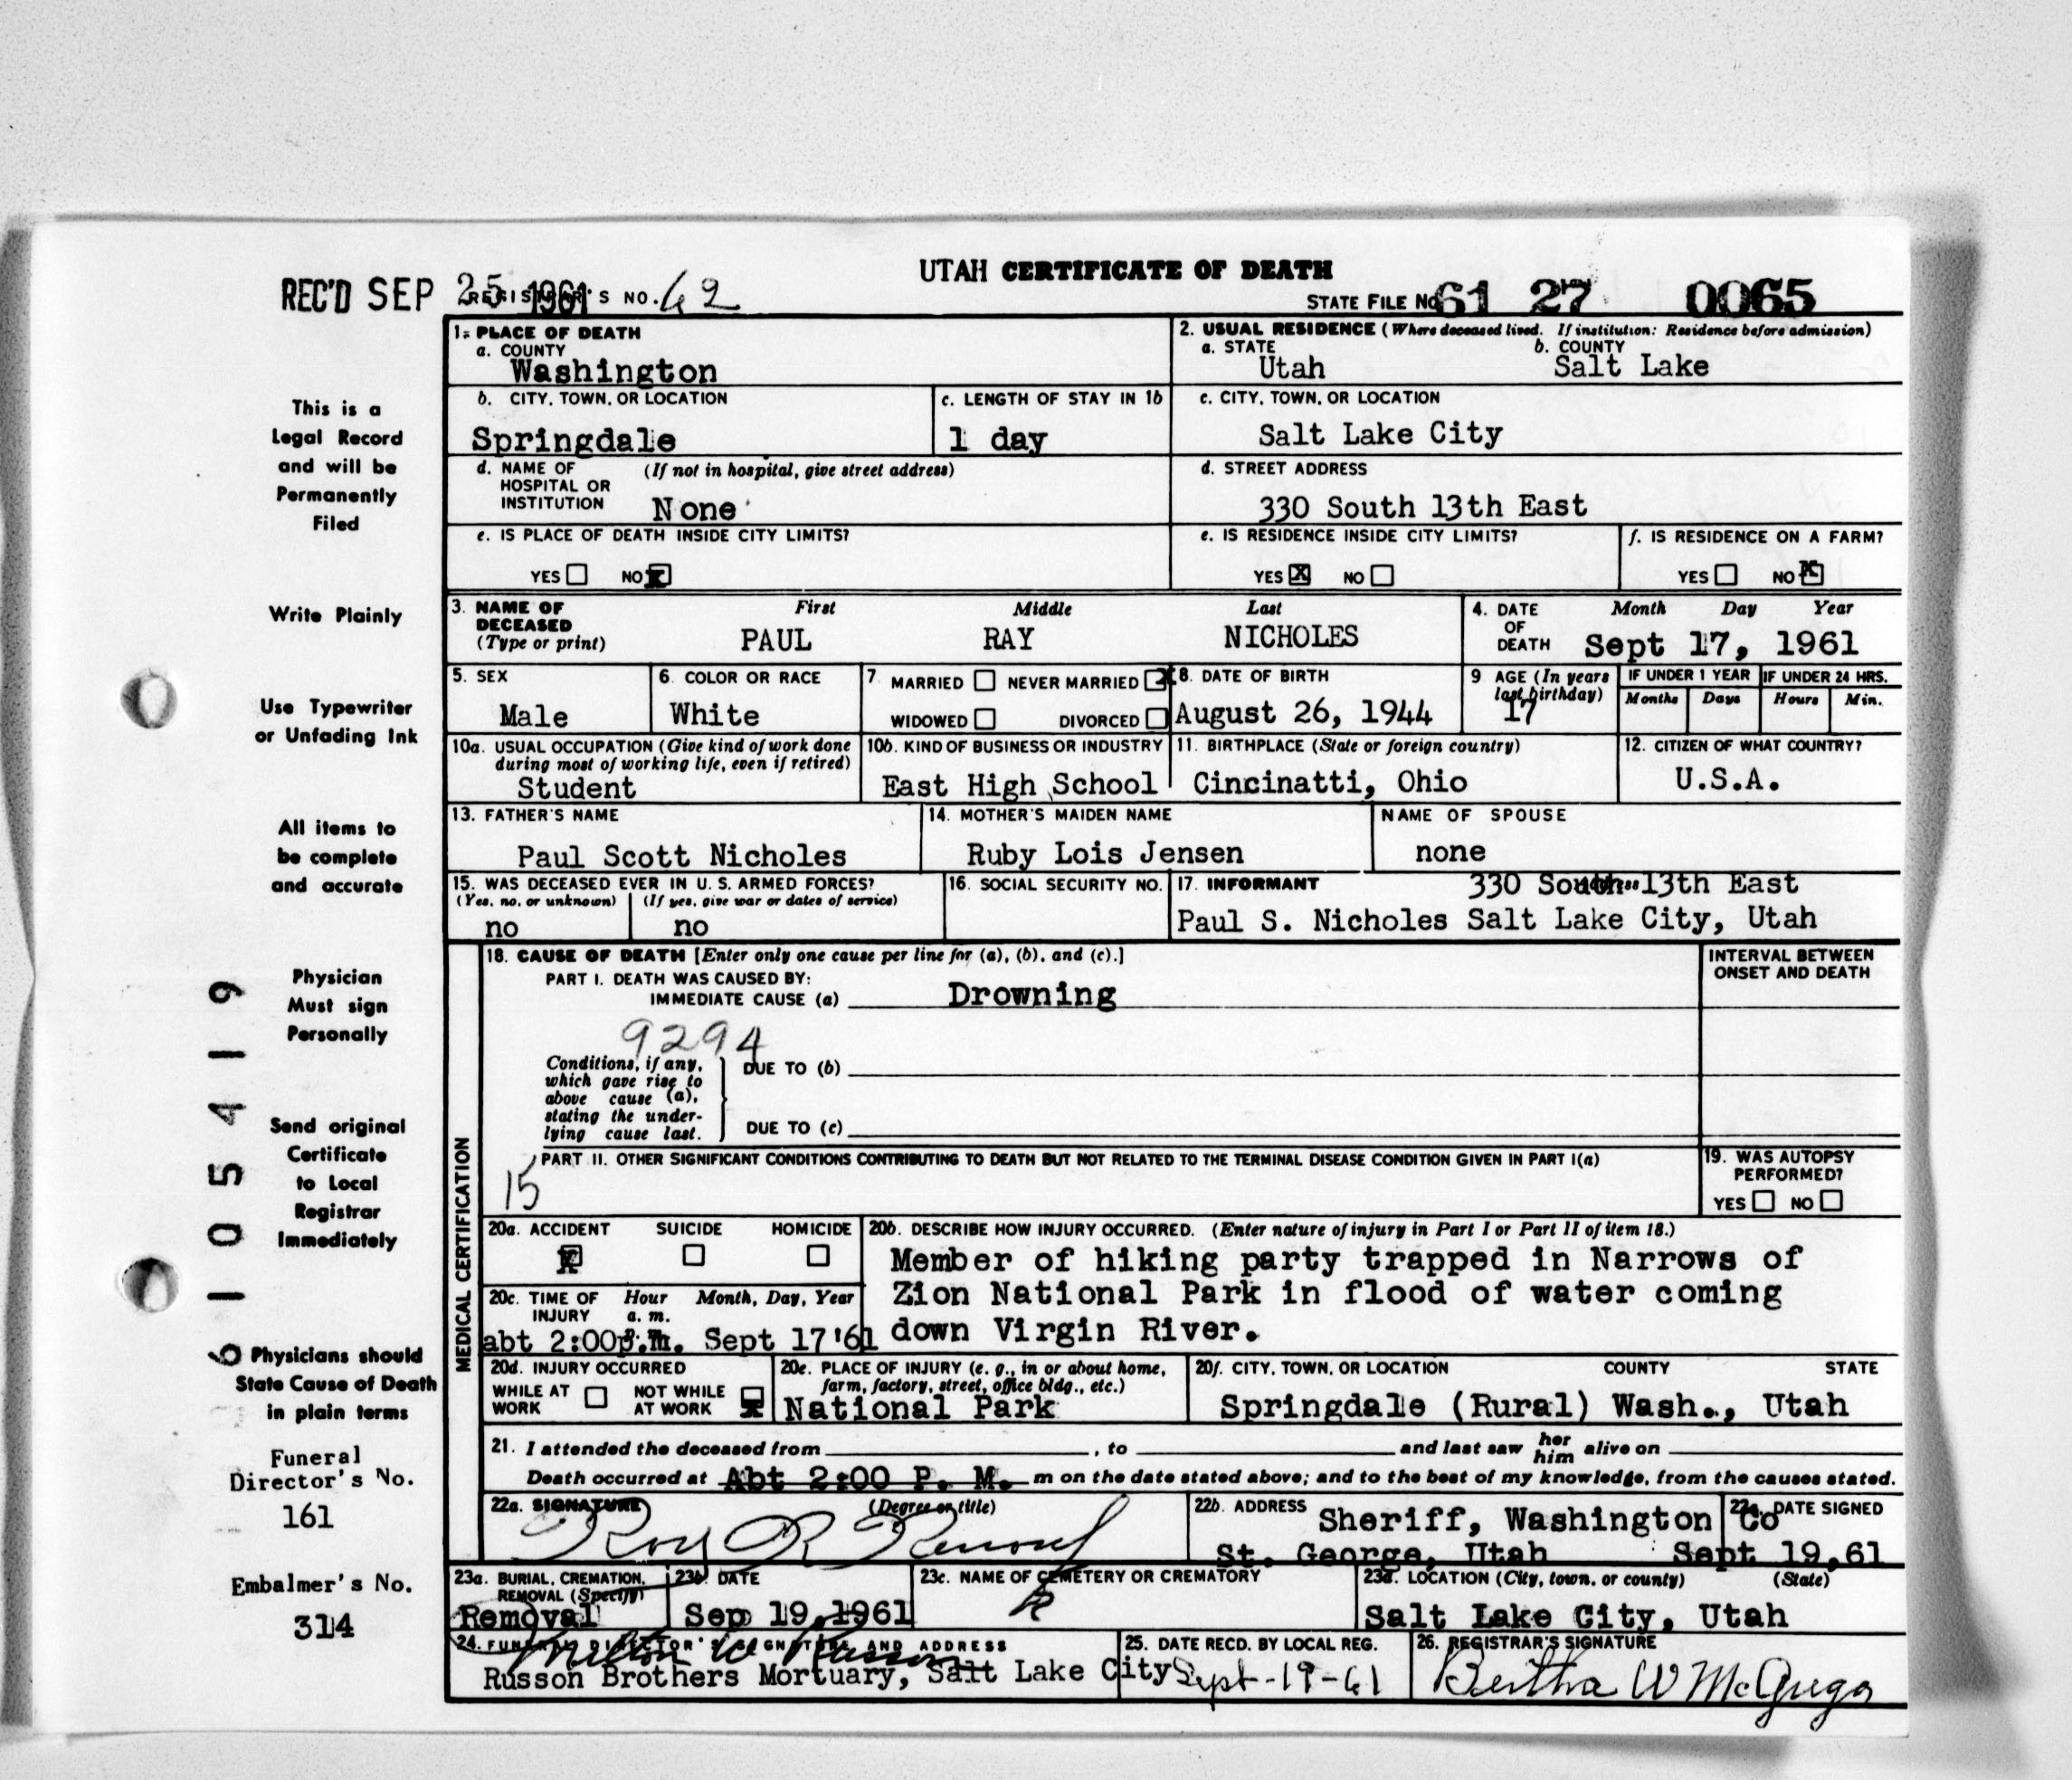 UTAH CERTIFICATE OF DEATH
REC'D SEP 25 1961 REGISTRAR'S NO. 62
STATE FILE NO. 61 27 0065
1. PLACE OF DEATH
a. COUNTY
Washington
2. USUAL RESIDENCE (Where deceased lived. If institution: Residence before admission)
a. STATE b. COUNTY
Utah Salt Lake
b. CITY, TOWN, OR LOCATION
Springdale
c. LENGTH OF STAY IN 1b
1 day
c. CITY, TOWN, OR LOCATION
Salt Lake City
d. NAME OF HOSPITAL OR INSTITUTION (If not in hospital, give street address)
None
d. STREET ADDRESS
330 South 13th East
e. IS PLACE OF DEATH INSIDE CITY LIMITS?
YES NO X
e. IS RESIDENCE INSIDE CITY LIMITS?
YES X NO
f. IS RESIDENCE ON A FARM?
YES NO X
3. NAME OF DECEASED (Type or print)
First Middle Last
PAUL RAY NICHOLES
4. DATE OF DEATH
Month Day Year
Sept 17, 1961
5. SEX
Male
6. COLOR OR RACE
White
7. MARRIED NEVER MARRIED X
WIDOWED DIVORCED
8. DATE OF BIRTH
August 26, 1944
9 AGE (In years last birthday)
17
IF UNDER 1 YEAR
Months Days
IF UNDER 24 HRS.
Hours Min.
10a. USUAL OCCUPATION (Give kind of work done
during most of working life, even if retired)
Student
10b. KIND OF BUSINESS OR INDUSTRY
East High School
11. BIRTHPLACE (State or foreign country)
Cincinatti, Ohio
12. CITIZEN OF WHAT COUNTRY?
U.S.A.
13. FATHER'S NAME
Paul Scott Nicholes
14. MOTHER'S MAIDEN NAME
Ruby Lois Jensen
NAME OF SPOUSE
none
15. WAS DECEASED EVER IN U. S. ARMED FORCES?
(Yes, no, or unknown) (If yes, give war or dates of service)
no no
16. SOCIAL SECURITY NO.
17. INFORMANT 330 South 13th East
Paul S. Nicholes Salt Lake City, Utah
MEDICAL CERTIFICATION
18. CAUSE OF DEATH [Enter only one cause per line for (a), (b), and (c).]
PART I. DEATH WAS CAUSED BY:
IMMEDIATE CAUSE (a) Drowning
INTERVAL BETWEEN
ONSET AND DEATH
9294
Conditions, if any,
which gave rise to
above cause (a),
stating the under-
lying cause last.
DUE TO (b)
DUE TO (c)
PART II. OTHER SIGNIFICANT CONDITIONS CONTRIBUTING TO DEATH BUT NOT RELATED TO THE TERMINAL DISEASE CONDITION GIVEN IN PART I(a)
15
19. WAS AUTOPSY PERFORMED?
YES NO
20a. ACCIDENT SUICIDE HOMICIDE
X
20b. DESCRIBE HOW INJURY OCCURRED. (Enter nature of injury in Part I or Part II of item 18.)
Member of hiking party trapped in Narrows of
Zion National Park in flood of water coming
down Virgin River.
20c. TIME OF INJURY Hour Month, Day, Year
a. m.
abt 2:00p.m. Sept 17'61
20d. INJURY OCCURRED
WHILE AT WORK NOT WHILE AT WORK X
20e. PLACE OF INJURY (e. g., in or about home,
farm, factory, street, office bldg., etc.)
National Park
20f. CITY, TOWN, OR LOCATION COUNTY STATE
Springdale (Rural) Wash., Utah
21. I attended the deceased from , to and last saw her him alive on
Death occurred at Abt 2:00 P. M. m on the date stated above; and to the best of my knowledge, from the causes stated.
22a. SIGNATURE (Degree or title)
Roy R Renouf
22b. ADDRESS
Sheriff, Washington Co
St. George, Utah
22c. DATE SIGNED
Sept 19,61
23a. BURIAL, CREMATION,
REMOVAL (Specify)
Removal
23b. DATE
Sep 19,1961
23c. NAME OF CEMETERY OR CREMATORY
23d. LOCATION (City, town, or county) (State)
Salt Lake City, Utah
24. FUNERAL DIRECTOR'S SIGNATURE AND ADDRESS
Milton W Russon
Russon Brothers Mortuary, Salt Lake City
25. DATE RECD. BY LOCAL REG.
Sept-19-61
26. REGISTRAR'S SIGNATURE
Bertha W McGregor
This is a
Legal Record
and will be
Permanently
Filed
Write Plainly
Use Typewriter
or Unfading Ink
All items to
be complete
and accurate
Physician
Must sign
Personally
Send original
Certificate
to Local
Registrar
Immediately
Physicians should
State Cause of Death
in plain terms
Funeral
Director's No.
161
Embalmer's No.
314
6 1 1 0 5 4 1 9